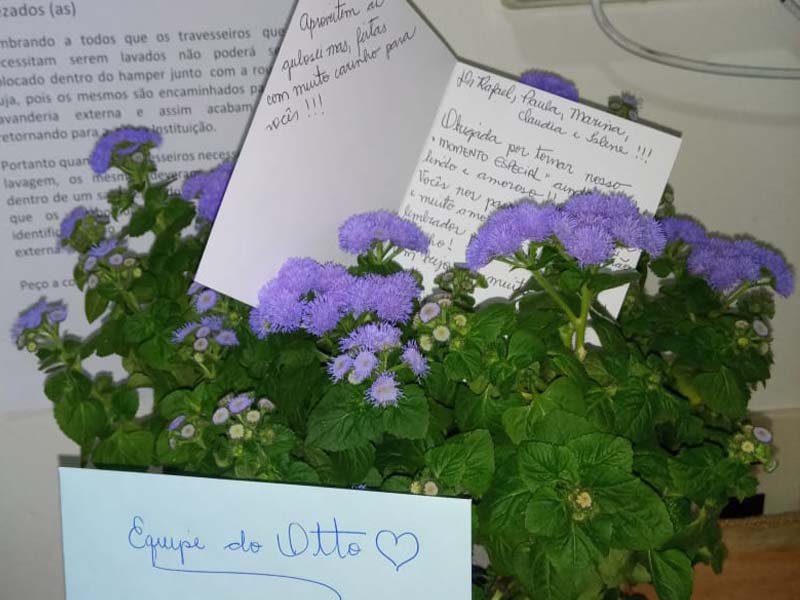 zados (as)
mbrando a todos que os travesseiros que
cessitam serem lavados não poderá se
olocado dentro do hamper junto com a rou
uja, pois os mesmos são encaminhados pa
avanderia externa e assim acabam
retornando para a instituição.
Portanto quan esseiros necess
lavagem, os mesm deverão
dentro de um s
que os
identifi
externa
Peço a co
Aproveitem as
guloseimas, feitas
com muito carinho para
vocês !!!
Dr Rafael, Paula, Marina,
Claudia e Salene !!!
Obrigada por tornar nosso
"MOMENTO ESPECIAL" aind
lindo e amoroso !!
Vocês nos
e muito amo
lembrados
muit
Equipe do Otto ♡